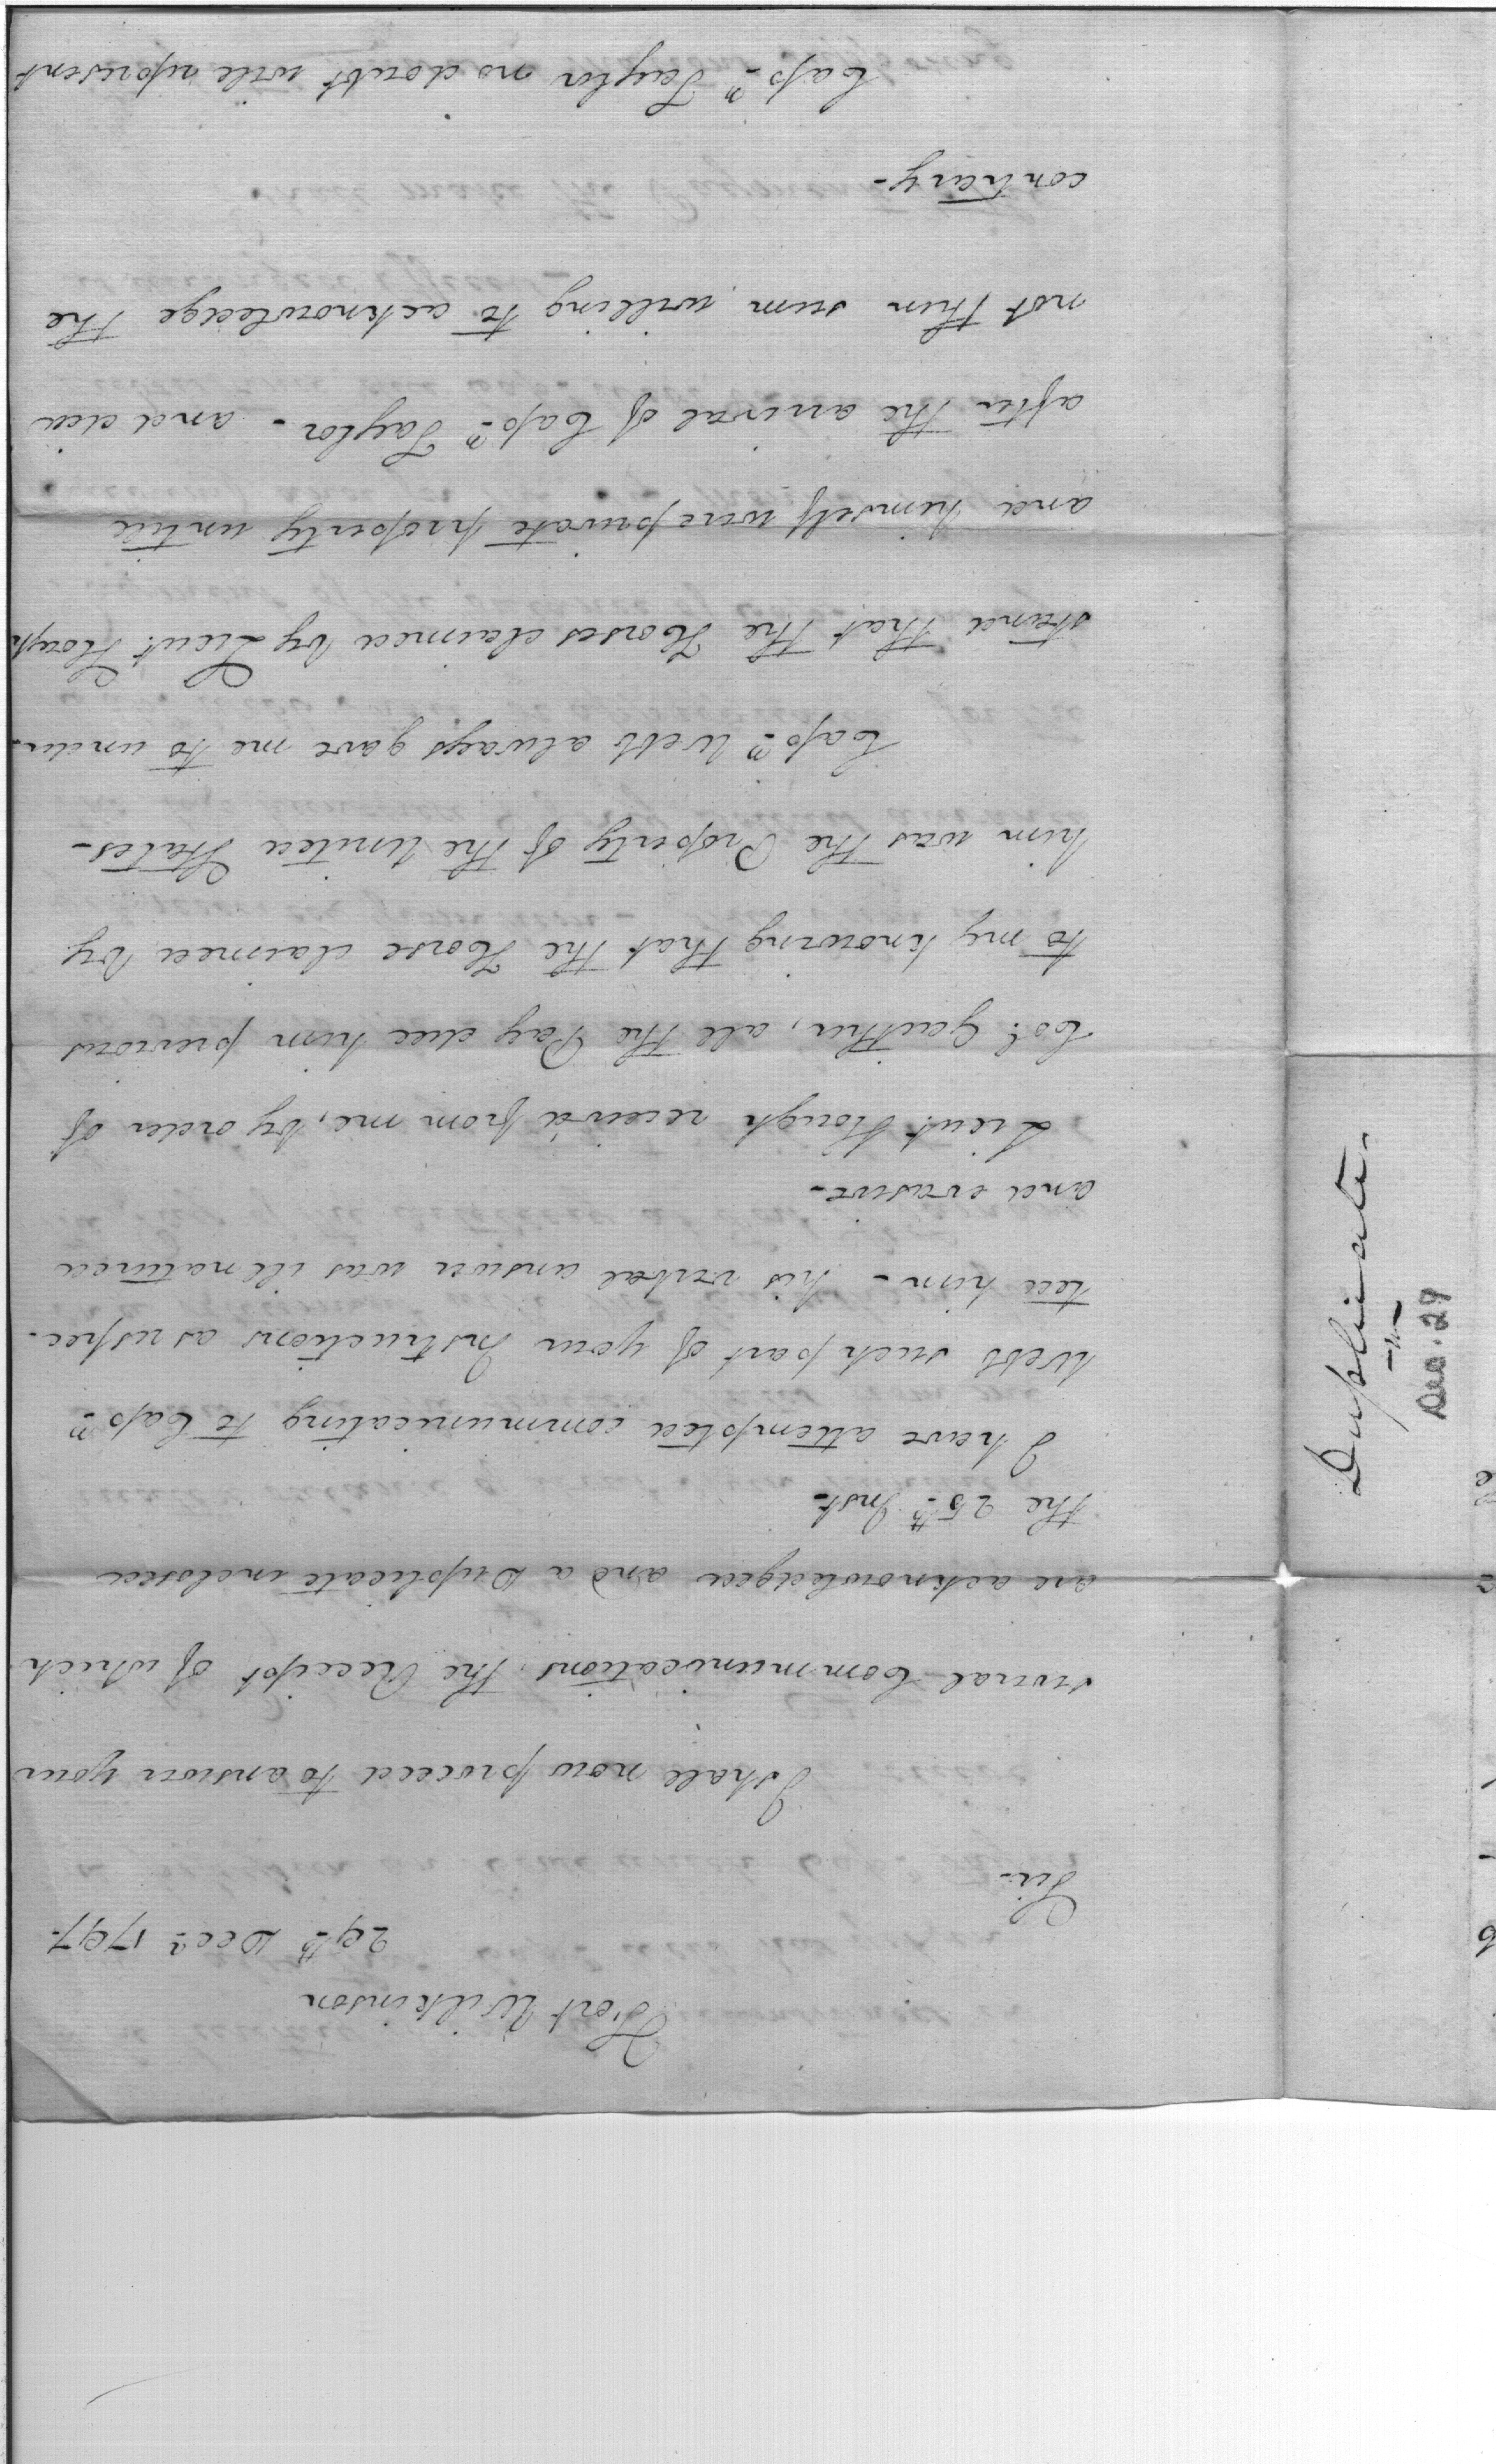 Fort Wilkinson
29th Decr 1797.
Sir-
I shall now proceed to answer your
several Communications, the Receipt of which
are acknowledged and a Duplicate inclosed
the 25th Inst-
I have attempted communicating to Capn
Webb such part of your Instructions as respec-
ted him - his verbal answer was illnatured
and evasive-
Lieut. Hough receiv'd from me, by order of
Col. Gaither, all the Pay due him previous
to my knowing that the Horse claimed by
him was the Property of the United States-
Capn Webb always gave me to under-
stand that the Horses claimed by Lieut. Hough
and himself were private property untill
after the arrival of Capn Taylor - and did
not then seem willing to acknowledge the
contrary-
Capn Taylor no doubt will represent
Duplicate-
-"-
Dec. 29